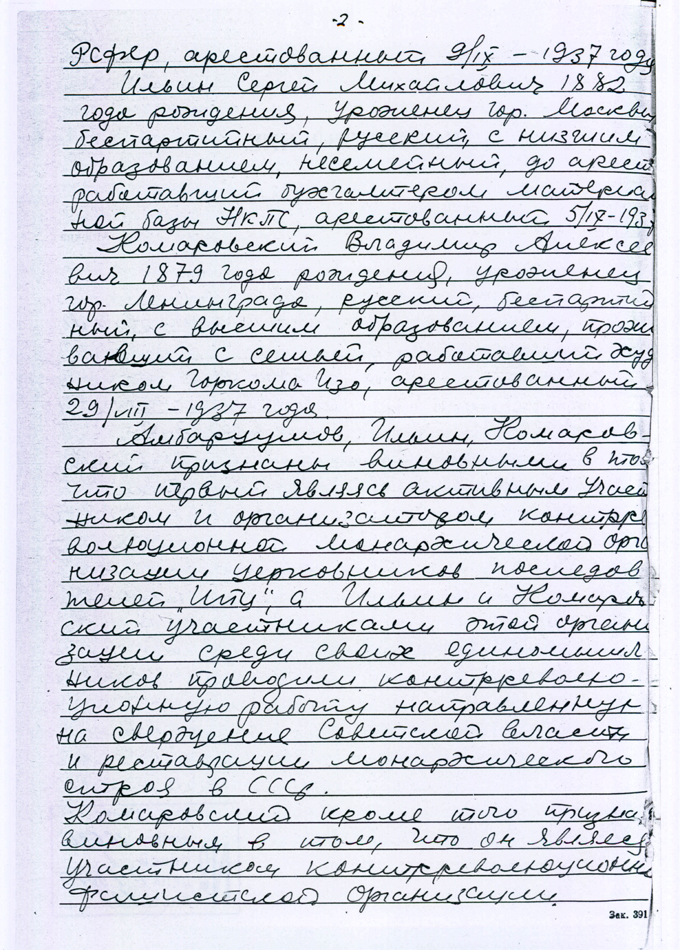 -2-
РСФСР, арестованный 9/IX – 1937 году
Ильин Сергей Михайлович 1882
года рождения, уроженец гор. Москвы
беспартийный, русский, с низшим
образованием, несемейный, до арест
работавший бухгалтером материа
ной базы НКПС, арестованный 5/IX-193
Комаровский Владимир Алексее
вич 1879 года рождения, уроженец
гор. Ленинграда, русский, беспартий
ный, с высшим образованием, прожи
вающий с семьей, работавший худ
ником Горкома Изо, арестованный
29/VIII – 1937 года.
Амбарцумов, Ильин, Комаров-
ский признаны виновными в том
что первый являясь активным участ
ником и организатором контрре
волюционной монархической орга
низации церковников последов
телей „ИПЦ", а Ильин и Комаров
ский участниками этой органи
зации среди своих единомышл
ников проводили контрреволю-
ционную работу направленную
на свержение Советской власти
и реставрации монархического
строя в СССР.
Комаровский кроме того признан
виновным в том, что он являлся
участником контрреволюционн
фашистской организации
Зак. 391